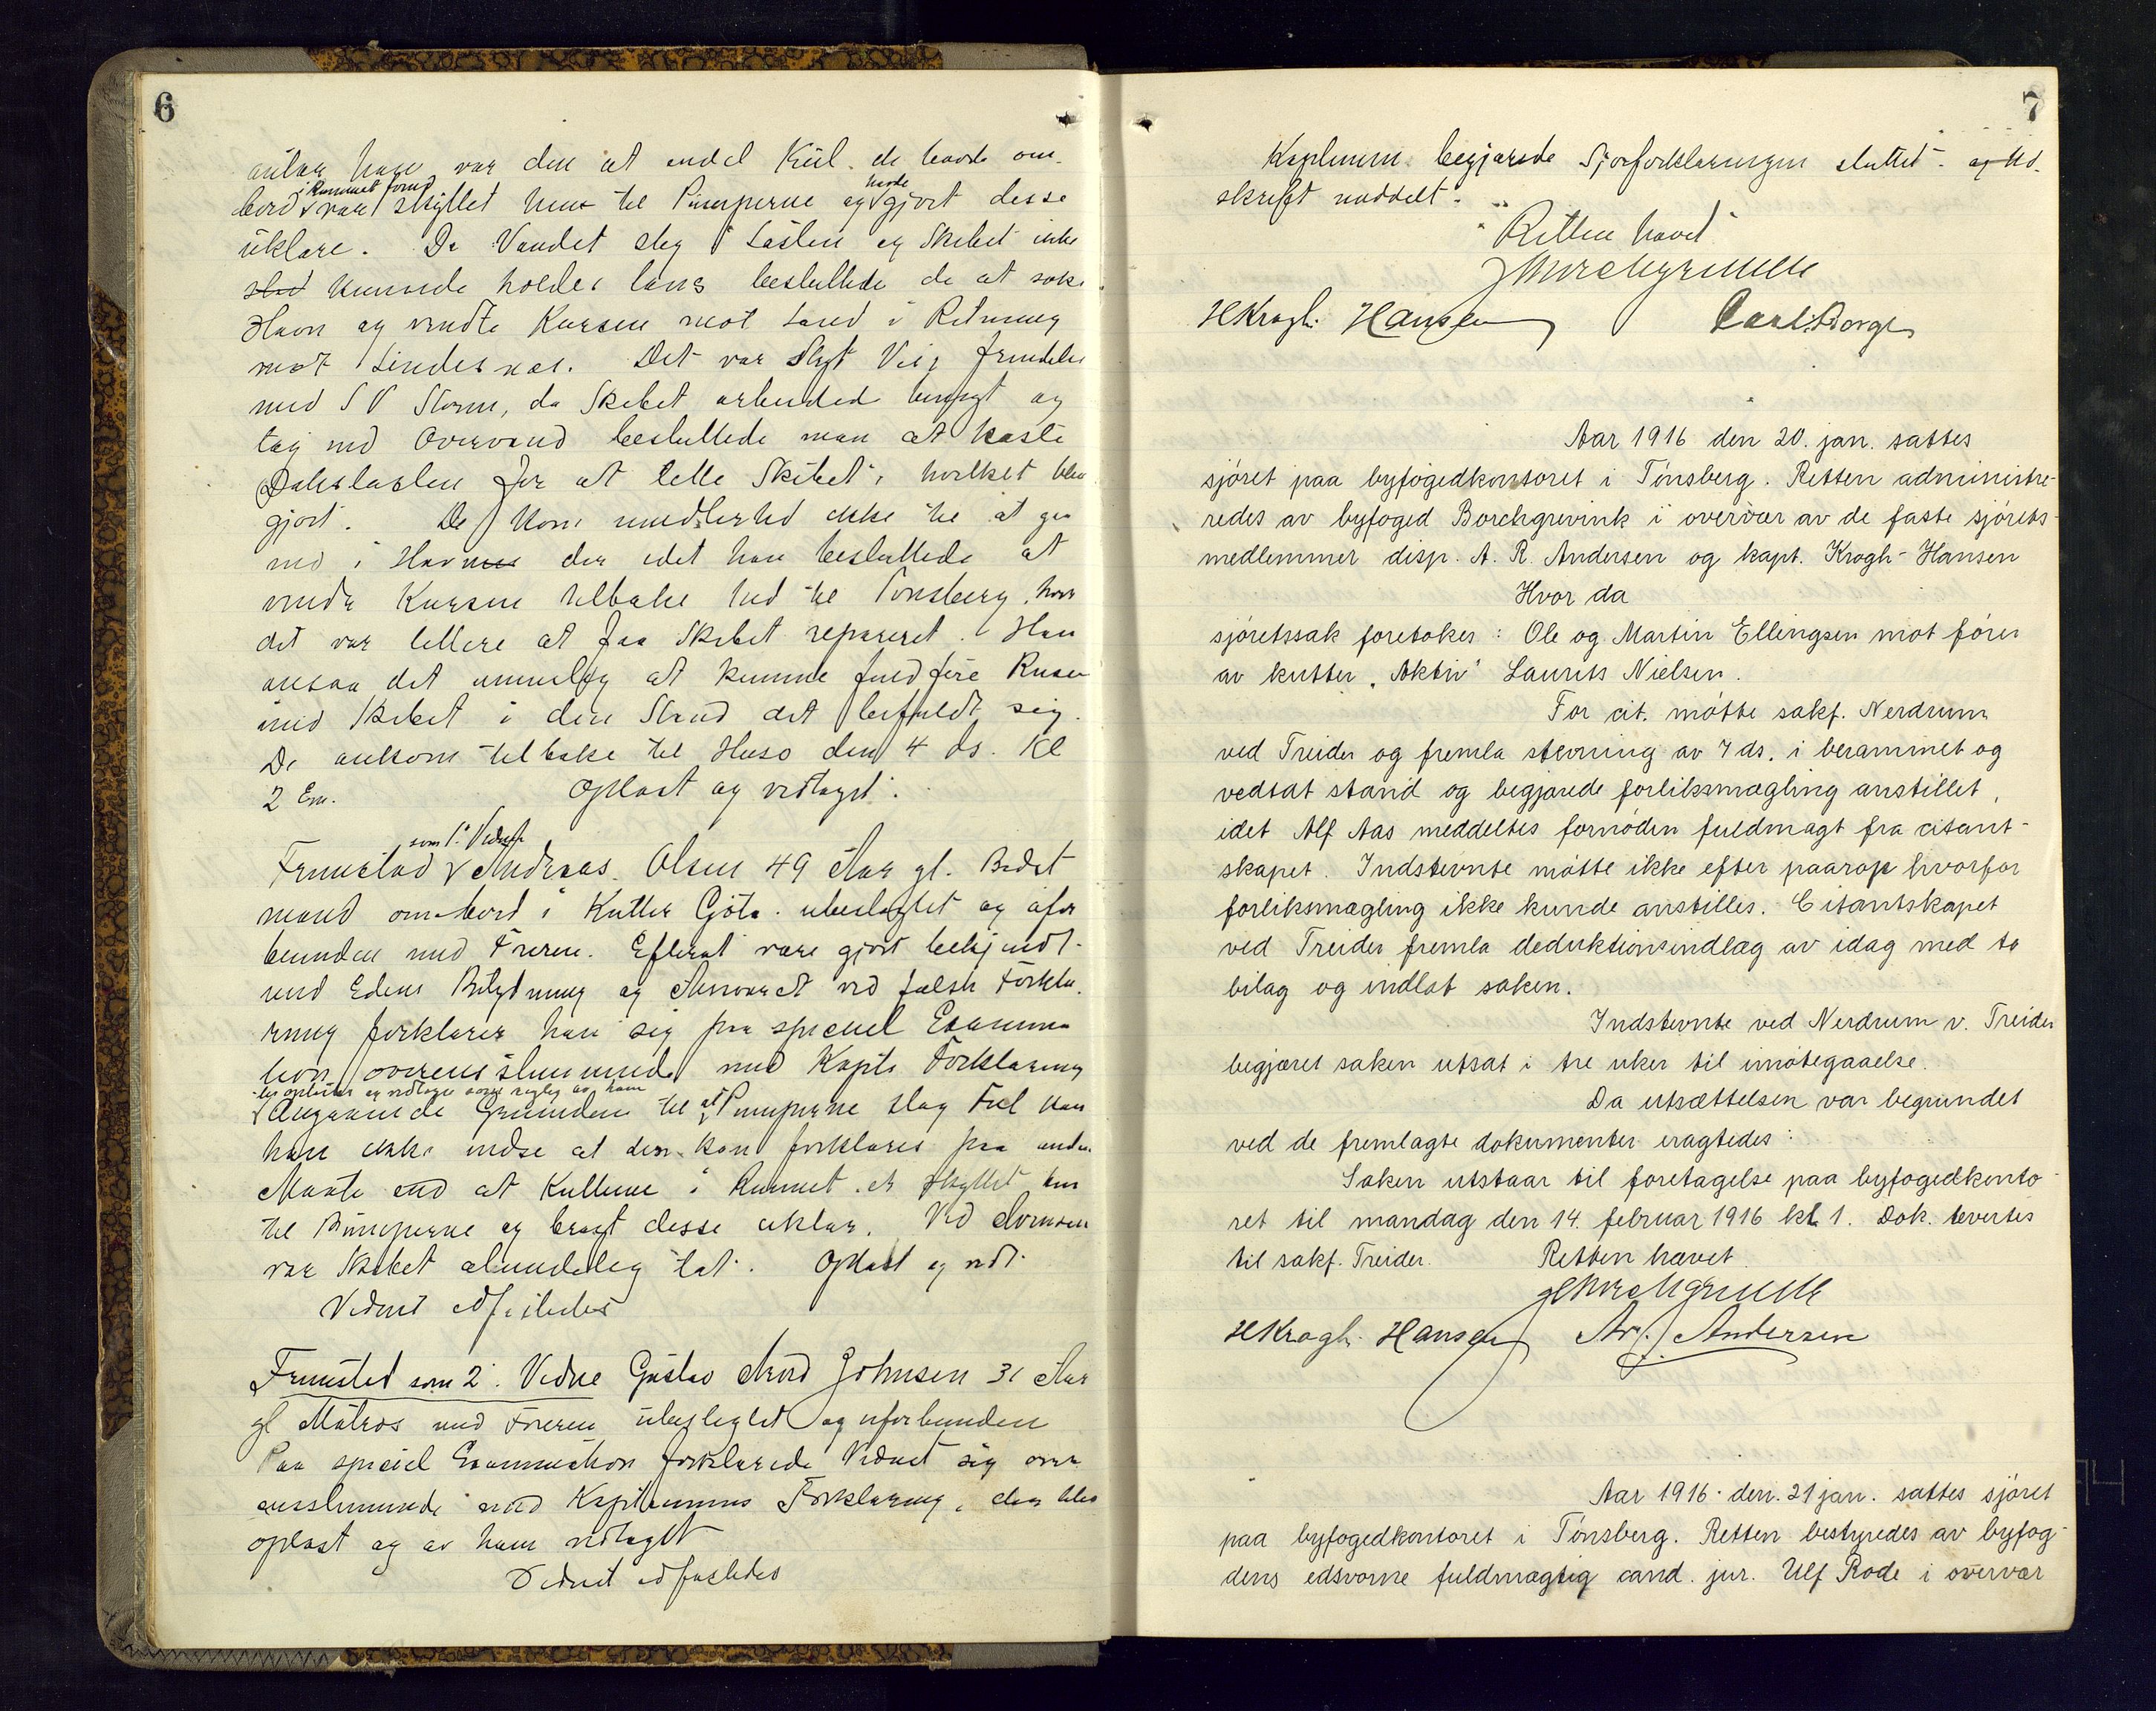 6
antar han var den at endel Kul de havde om-
bord i Rummet som var skyllet hen til Pumperne og havde gjort desse
uklare. Da Vandet steg i Lasten og Skibet ikke
kunde holdes læns besluttede de at søke
Havn og vendte Kursen mot Land i Retning
mot Lindesnes. Det var Stygt Veir fremdeles
med S V Storm, da Skibet arbeidede tungt og
tog ind Overvand besluttede man at kaste
Dækslasten for at lette Skibet, hvilket blev
gjort. De kom imidlertid ikke til at gaa
ind i Havn der idet han besluttede at
vende Kursen tilbake ind til Tønsberg, hvor
det var lettere at faa Skibet repareret. Han
ansaa det umulig at kunne fuldføre Reisen
med Skibet i den Stand det befandt sig.
De ankom tilbake til Husø den 4 ds. Kl
2 Em. Oplæst og vedtaget.
Fremstod som 1ste Vidne Andreas Olsen 49 Aar gl. Bedst
mand ombord i Kutter Göta. ubeslegtet og ufor
bunden med Føreren. Efterat være gjort bekjendt
med Edens Betydning og Ansvaret ved falsk Forkla-
ring forklarer han sig paa speciel Examina
tion overensstemmende med Kapts Forklaring
der oplæstes og vedtoges som rigtig av ham
Angaaende Grunden til at Pumperne slog Feil kan
han ikke indse at den kan forklares paa anden
Maate end at Kullene i Rummet er skyllet hen
til Pumperne og bragt desse uklar. Ved Avreisen
var Skibet almindelig tæt. Oplæst og vedt.
Vidnet edfæstedes
Fremsted som 2. Vidne Gustav Arvid Johnsen 31 Aar
gl Matros med Føreren ubeslegtet og uforbunden
Paa speciel Examination forklarede Vidnet sig over
ensstemmende med Kapteinens Forklaring, der blev
oplæst og av ham vedtaget
Vidnet edfæstedes
7
Kapteinen begjærede Sjøforklaringen sluttet og Ud-
skrift meddelt.
Retten hævet
JBorchgrevink
H Krogh-Hansen Carl Borge
Aar 1916 den 20. jan. sattes
sjøret paa byfogedkontoret i Tønsberg. Retten administre-
redes av byfoged Borchgrevink i overvær av de faste sjørets-
medlemmer disp. A. R. Andersen og kapt. Krogh-Hansen
Hvor da
sjøretssak foretokes: Ole og Martin Ellingsen mot fører
av kutter "Aktiv" Laurits Nielsen.
For cit. møtte sakf. Nerdrum
ved Treider og fremla stevning av 7 ds. i berammet og
vedtat stand og begjærede forliksmægling anstillet,
idet Alf Aas meddeltes fornøden fuldmagt fra citant-
skapet. Indstevnte møtte ikke efter paarop hvorfor
forliksmægling ikke kunde anstilles. Citantskapet
ved Treider fremla deduktionsindlæg av idag med to
bilag og indlot saken.
Indstevnte ved Nerdrum v. Treider
begjæret saken utsat i tre uker til imøtegaaelse.
Da utsættelsen var begrundet
ved de fremlagte dokumenter eragtedes:
Saken utstaar til foretagelse paa byfogedkonto
ret til mandag den 14. februar 1916 kl. 1. Dok. levertes
til sakf. Treider. Retten hævet
JBorchgrevink
H Krogh-Hansen A.R. Andersen
Aar 1916 den 21 jan. sattes sjøret
paa byfogedkontoret i Tønsberg. Retten bestyredes av byfog-
dens edsvorne fuldmægtig cand. jur. Ulf Rode i overvær